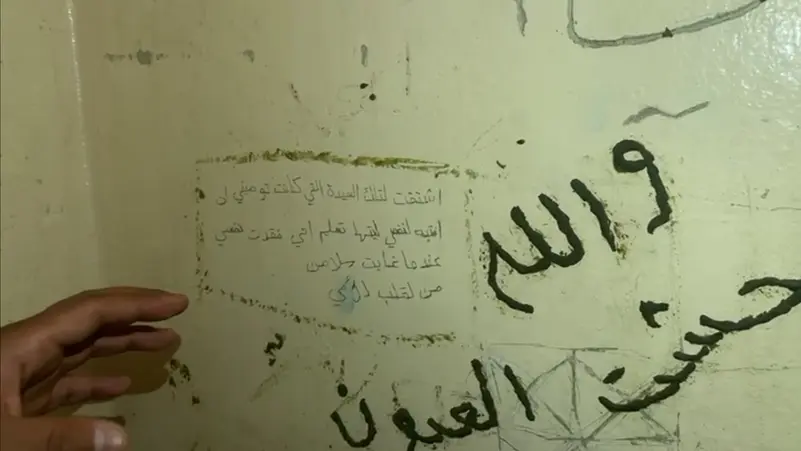 اشتقت لتلك السيدة التي كانت توصيني ان
انتبه لنفسي ليتها تعلم اني فقدت نفسي
عندما غابت سلامن
من لقلب
والله
حسنت العيون